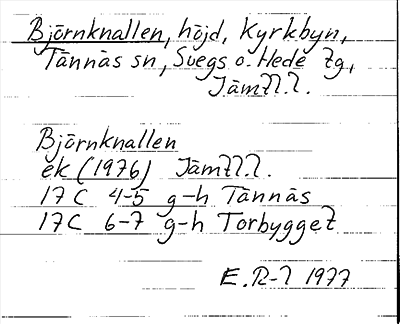 Björnknallen, höjd, Kyrkbyn,
Tännäs sn, Svegs o. Hede tg,
Jämtl.l.
Björnknallen
ek (1976) Jämtl.l.
17 C 4-5 g-h Tännäs
17 C 6-7 g-h Torbygget
E. R-l 1977